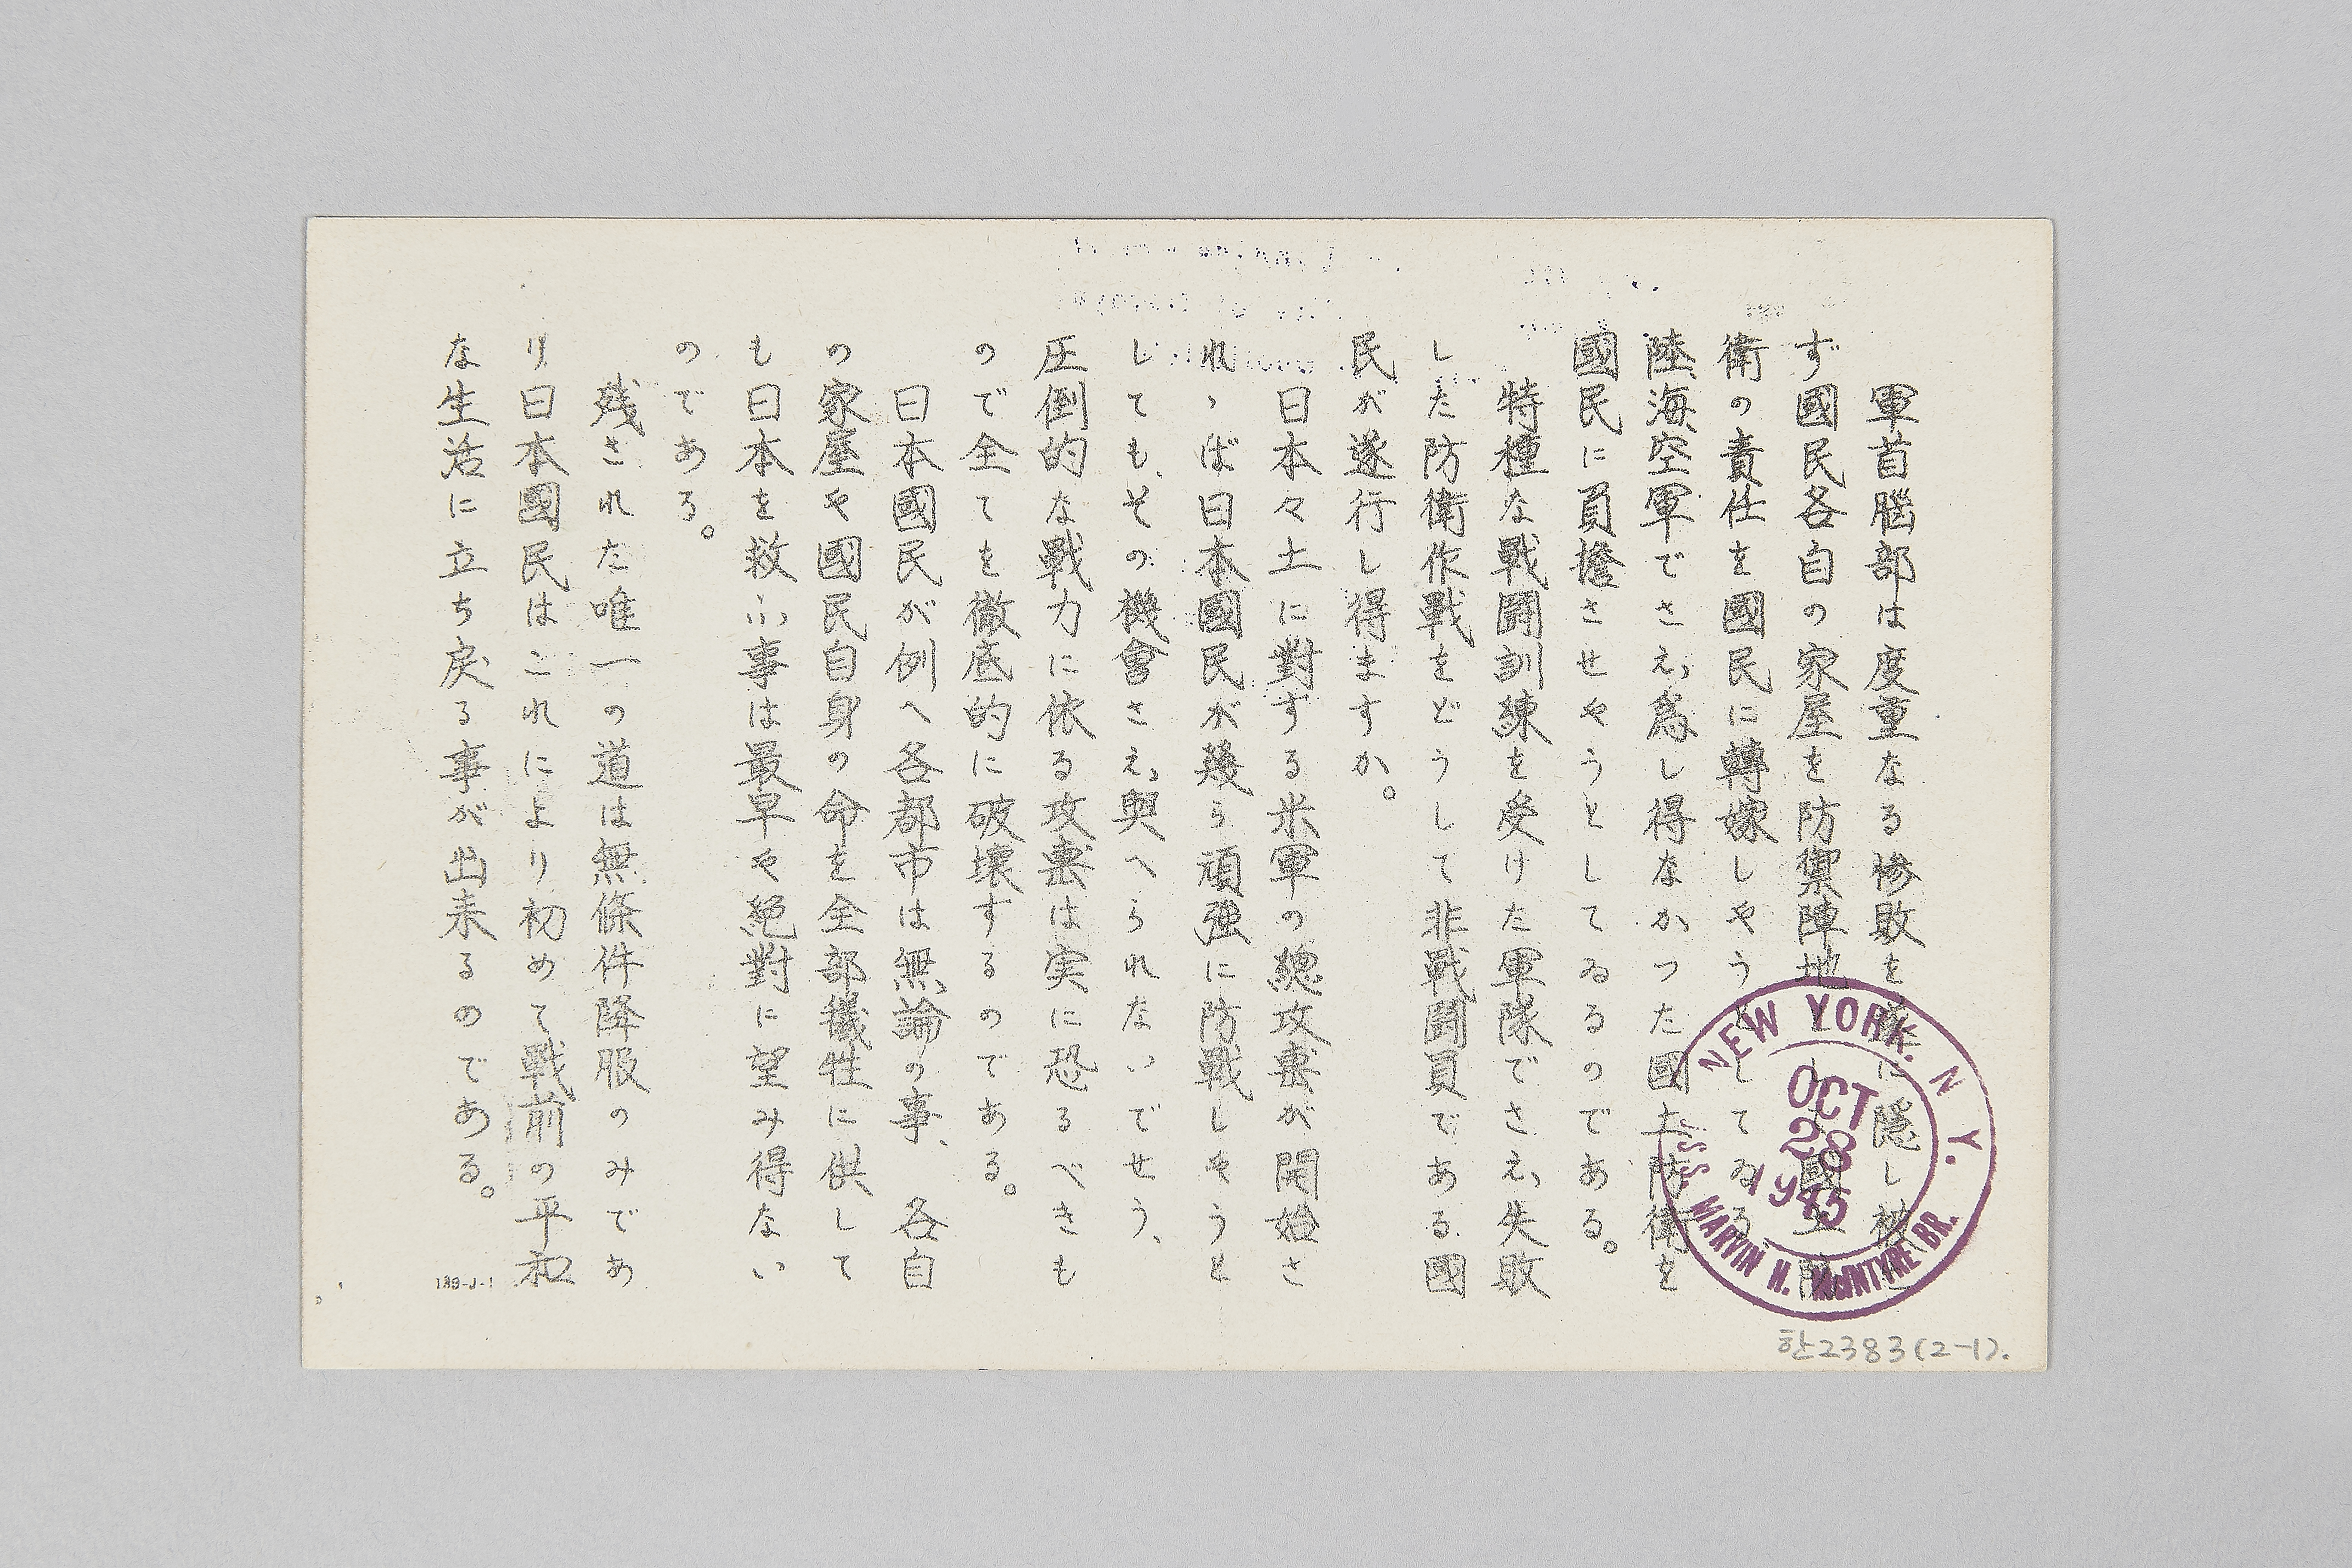 軍首腦部は度重なる惨敗を
に隠し
ず國民各自の家屋を防禦陣地
國土防
衛の責任を國民に轉嫁しやうとしてゐる。
陸海空軍でさえ爲し得なかつた國土防衛を
國民に負擔させやうとしてゐるのである。
特種な戰鬪訓練を受けた軍隊でさえ失敗
した防衛作戰をどうして非戰鬪員である國
民が遂行し得ますか。
日本々土に對する米軍の總攻撃が開始さ
れゝば日本國民が幾ら頑強に防戰しやうと
しても、その機會さえ與へられないでせう、
圧倒的な戰力に依る攻撃は実に恐るべきも
ので全てを徹底的に破壊するのである。
日本國民が例へ各都市は無論の事、各自
の家屋や國民自身の命を全部犠牲に供して
も日本を救ふ事は最早や絶對に望み得ない
のである。
残された唯一の道は無條件降服のみであ
り日本國民はこれにより初めて戰前の平和
な生活に立ち戻る事が出来るのである。
189-J-1
NEW YORK. N.Y.
OCT
28
1945
MARVIN H. McINTYRE BR.
한2383(2-1).